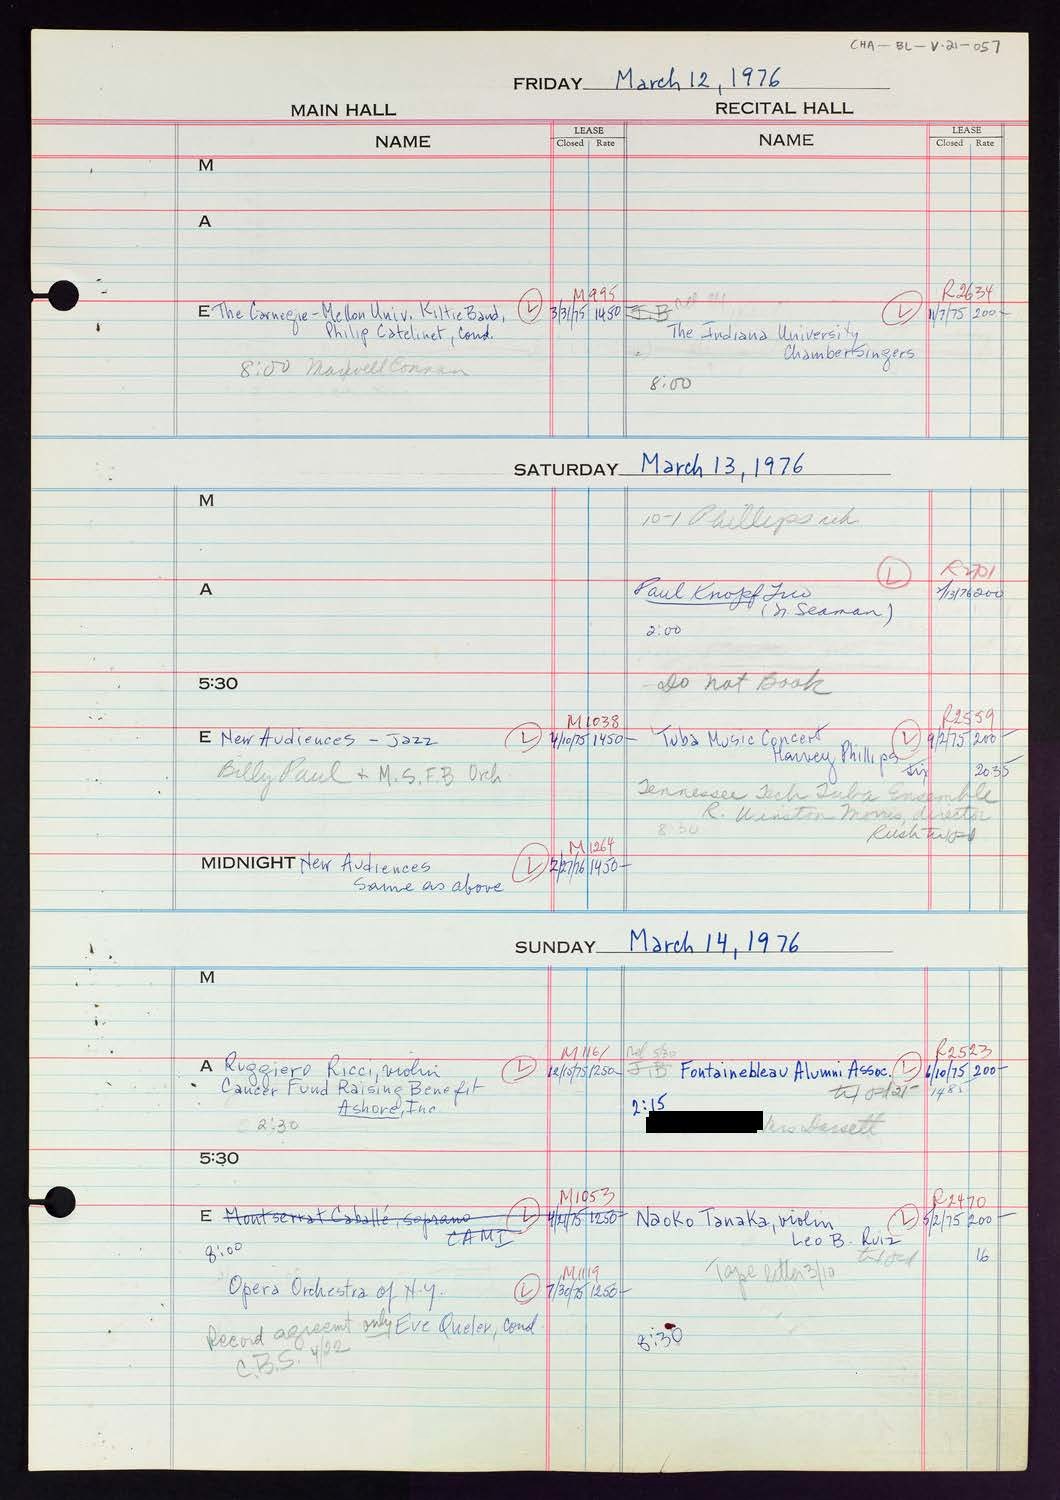 CHA-BL-V-21-057
FRIDAY March 12, 1976
MAIN HALL RECITAL HALL
NAME LEASE Closed Rate NAME LEASE Closed Rate
M
A
M995 R2634
E The Carnegie-Mellon Univ. Kiltie Band, L 3/31/75 1450 J.B. L 11/7/75 200-
Philip Catelinet, Cond. The Indiana University
Chamber Singers
8:00 Maxwell Connan
8:00
SATURDAY March 13, 1976
M
10-1 Phillips reh
L R2701
A Paul Knopf Trio 2/13/76 200
(N Seaman)
2:00
5:30 Do Not Book
M1038 R2559
E New Audiences - Jazz L 4/10/75 1450- Tuba Music Concert L 9/2/75 200-
Harvey Phillips
Billy Paul + M.S.F.B Orch 2035
Tennessee Tech Tuba Ensemble
R. Winston Morris, director
8:30
M1264
MIDNIGHT New Audiences L 2/27/76 1450-
Same as above
SUNDAY March 14, 1976
M
M1161 R2523
A Ruggiero Ricci, violin L 12/15/75 1250- J.B. Fontainebleau Alumni Assoc. L 6/10/75 200-
Cancer Fund Raising Benefit
Ashore, Inc 2:15
2:30 Mrs Dorsett
5:30
M1053 R2470
E Montserrat Caballé, soprano L 4/21/75 1250- Naoko Tanaka, violin L 5/2/75 200-
CAMI Leo B. Ruiz
8:00 16
Tape letter 3/10
M1119
Opera Orchestra of N.Y. L 7/30/75 1250-
Record agreemt only Eve Queler, Cond 8:30
C.B.S. 4/22